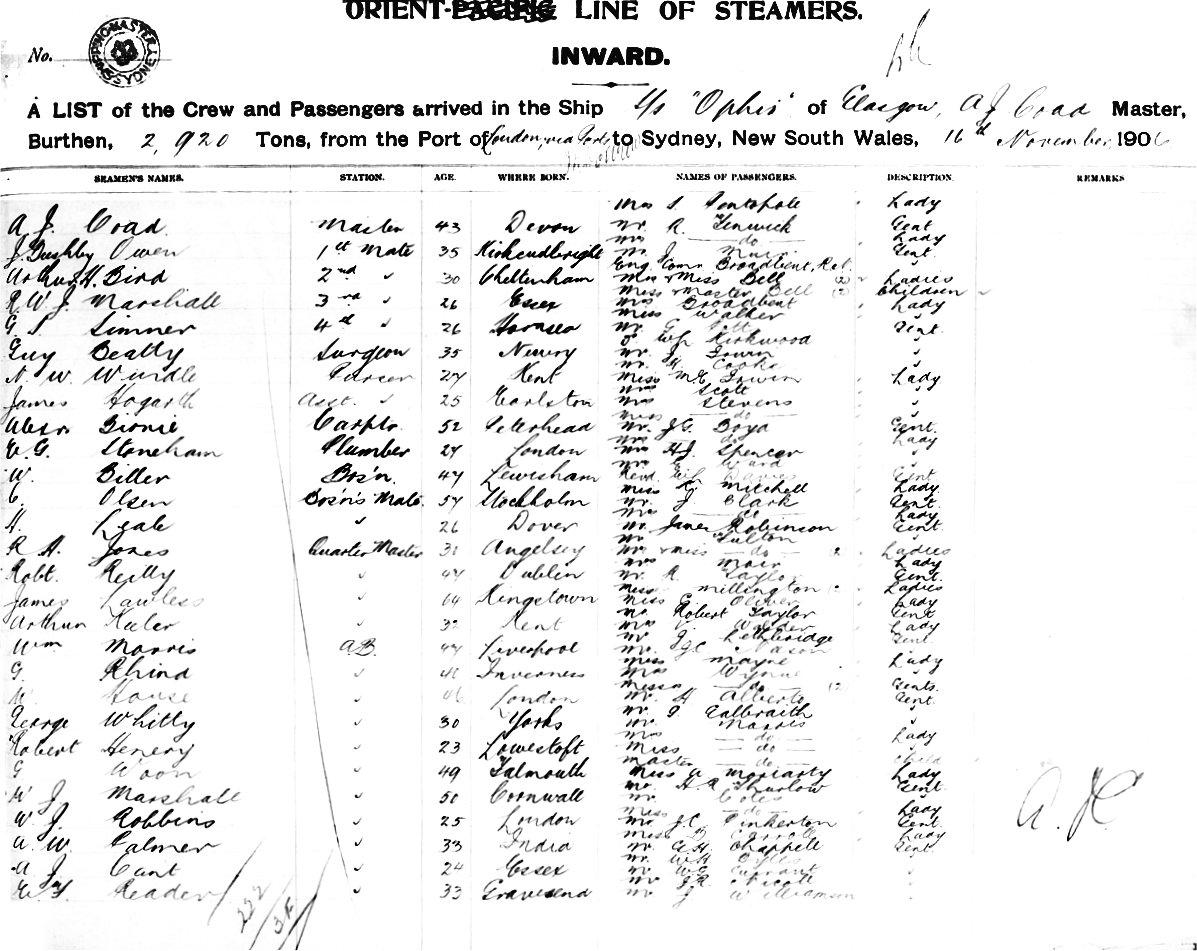 ORIENT-PACIFIC LINE OF STEAMERS.
INWARD.
No.
SHIPPING MASTER SYDNEY
A LIST of the Crew and Passengers arrived in the Ship S/s "Ophir" of Glasgow, A J Coad Master,
Burthen, 2,920 Tons, from the Port of London via Ports to Sydney, New South Wales, 16th November 1906
SEAMEN'S NAMES. STATION. AGE. WHERE BORN. NAMES OF PASSENGERS. DESCRIPTION. REMARKS
Lady
A. J. Coad. Master 43 Devon Mr. R. Fenwick Gent
Mrs — do — Lady
J. Owen 1st Mate 35 Kirkcudbright Mr. J. Muir Gent.
Eng. Comr. Broadbent, Ret.
Arthur H. Bird 2nd " 30 Cheltenham Mrs & Miss Bell (2) Ladies
Miss & Master Bell (2) Children
R W J Marshall 3rd " 26 Essex Mrs Broadbent Lady
Miss Walker "
G S Simner 4th " 26 Hornsea Mr. G. Pitt Gent.
Kirkwood "
Guy Beatty Surgeon 35 Newry Mr. J. Irwin "
Mr. Cooke "
N. W. Windle Purser 27 Kent Miss Irwin Lady
Mrs Scott "
James Hogarth Asst. " 25 Earlston Mrs Stevens "
Miss — do — "
Birnie Carptr. 52 Peterhead Mr. J.G. Boyd Gent.
Mrs do Lady
E. G. Stoneham Plumber 27 London Mrs H.J. Spencer "
Mrs Ward "
W. Biller Bos'n. 47 Lewisham Revd. Davies Gent
Miss Mitchell Lady
C Olsen Bos'n's Mate. 57 Stockholm Mr. J Clark Gent.
Mrs — do — Lady
H. Leale " 26 Dover Mr. James Robinson Gent.
Mr. Fulton "
R A. Jones Quarter Master 31 Angelsey Mrs & Miss — do — (2) Ladies
Mrs Moir Lady
Robt. Reilly " 47 Dublin Mr. R. Taylor Gent.
Misses Millington Ladies
James Lawless " 64 Kingstown Miss E. Oliver Lady
Mr. Robert Taylor Gent
Arthur " 32 Kent Mrs Wilder Lady
Mr. J. Lethbridge Gent.
Wm Morris A.B. 44 Liverpool Mr. Nason "
Miss Mayne Lady
G. Rhind " Inverness Mrs Wynne "
Messrs — do — (2) Gents.
House " 46 London Mr. H Alberts Gent.
George Whitty " 30 Yorks Mr. Galbraith "
Mr. Morris "
Mrs — do — "
Robert Henery " 23 Lowestoft Miss — do — Lady
Master — do — Child
G Woon " 49 Falmouth Miss A Moriarty Lady
Mr. H.R. Thurlow Gent.
W J Marshall " 50 Cornwall Mr. Coles "
Miss — do — Lady
W J. Robbins " 25 London Mr. J.C. Pinkerton Gent.
Miss Carroll Lady
A. W. Palmer " 33 India Mr. G.H. Chappell Gent.
Mr. W.H.
A J Cant " 24 Essex Mr. W.G. Currant "
Mr. J.R. Nicoll
Reader " 33 Gravesend Mr. J Williamson "
222